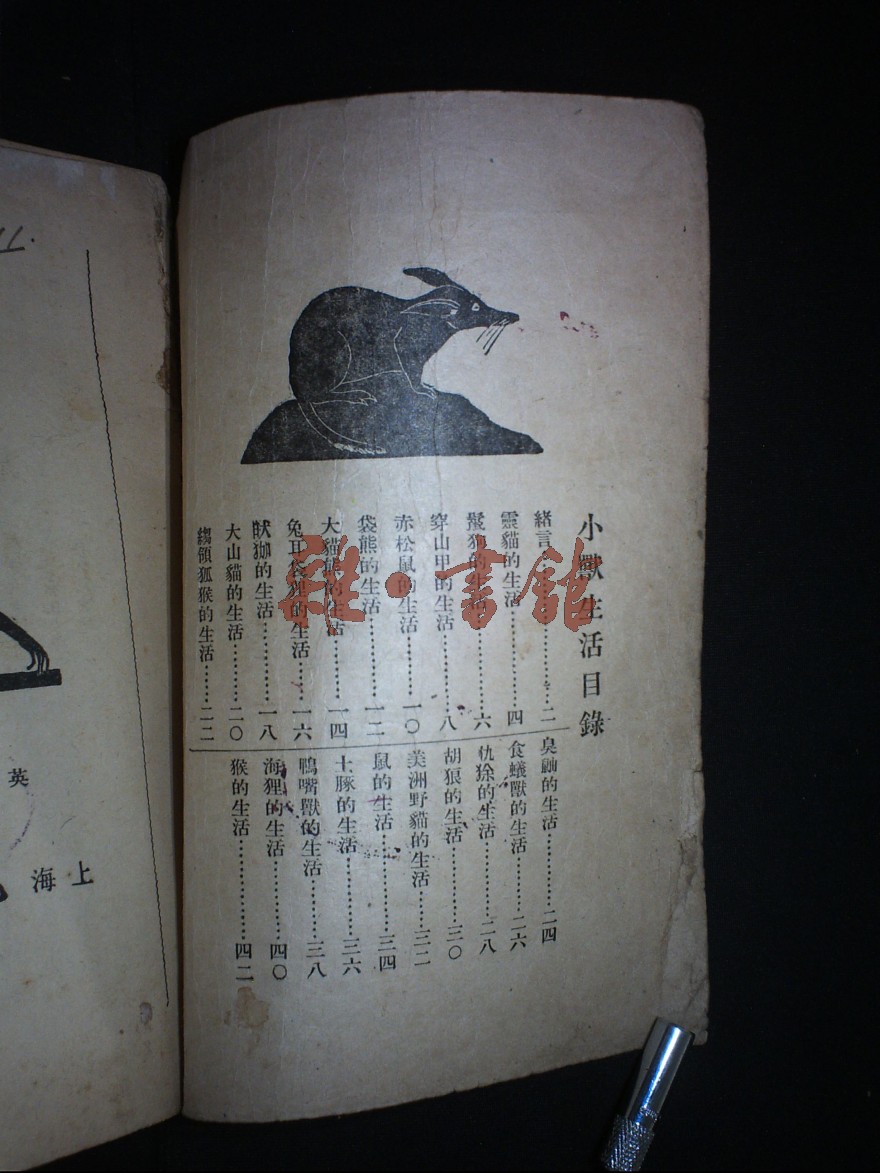 小獸生活目錄
緒言………二
靈貓的生活………四
鬣狗的生活………六
穿山甲的生活………八
赤松鼠的生活………一〇
袋熊的生活………一二
大貓熊的生活………一四
兔耳袋狸的生活………一六
的生活………一八
大山貓的生活………二〇
縐領狐猴的生活………二二
臭鼬的生活………二四
食蟻獸的生活………二六
犰狳的生活………二八
胡狼的生活………三〇
美洲野貓的生活………三二
鼠的生活………三四
土豚的生活………三六
鴨嘴獸的生活………三八
海狸的生活………四〇
猴的生活………四二
雜·書館
英
上海